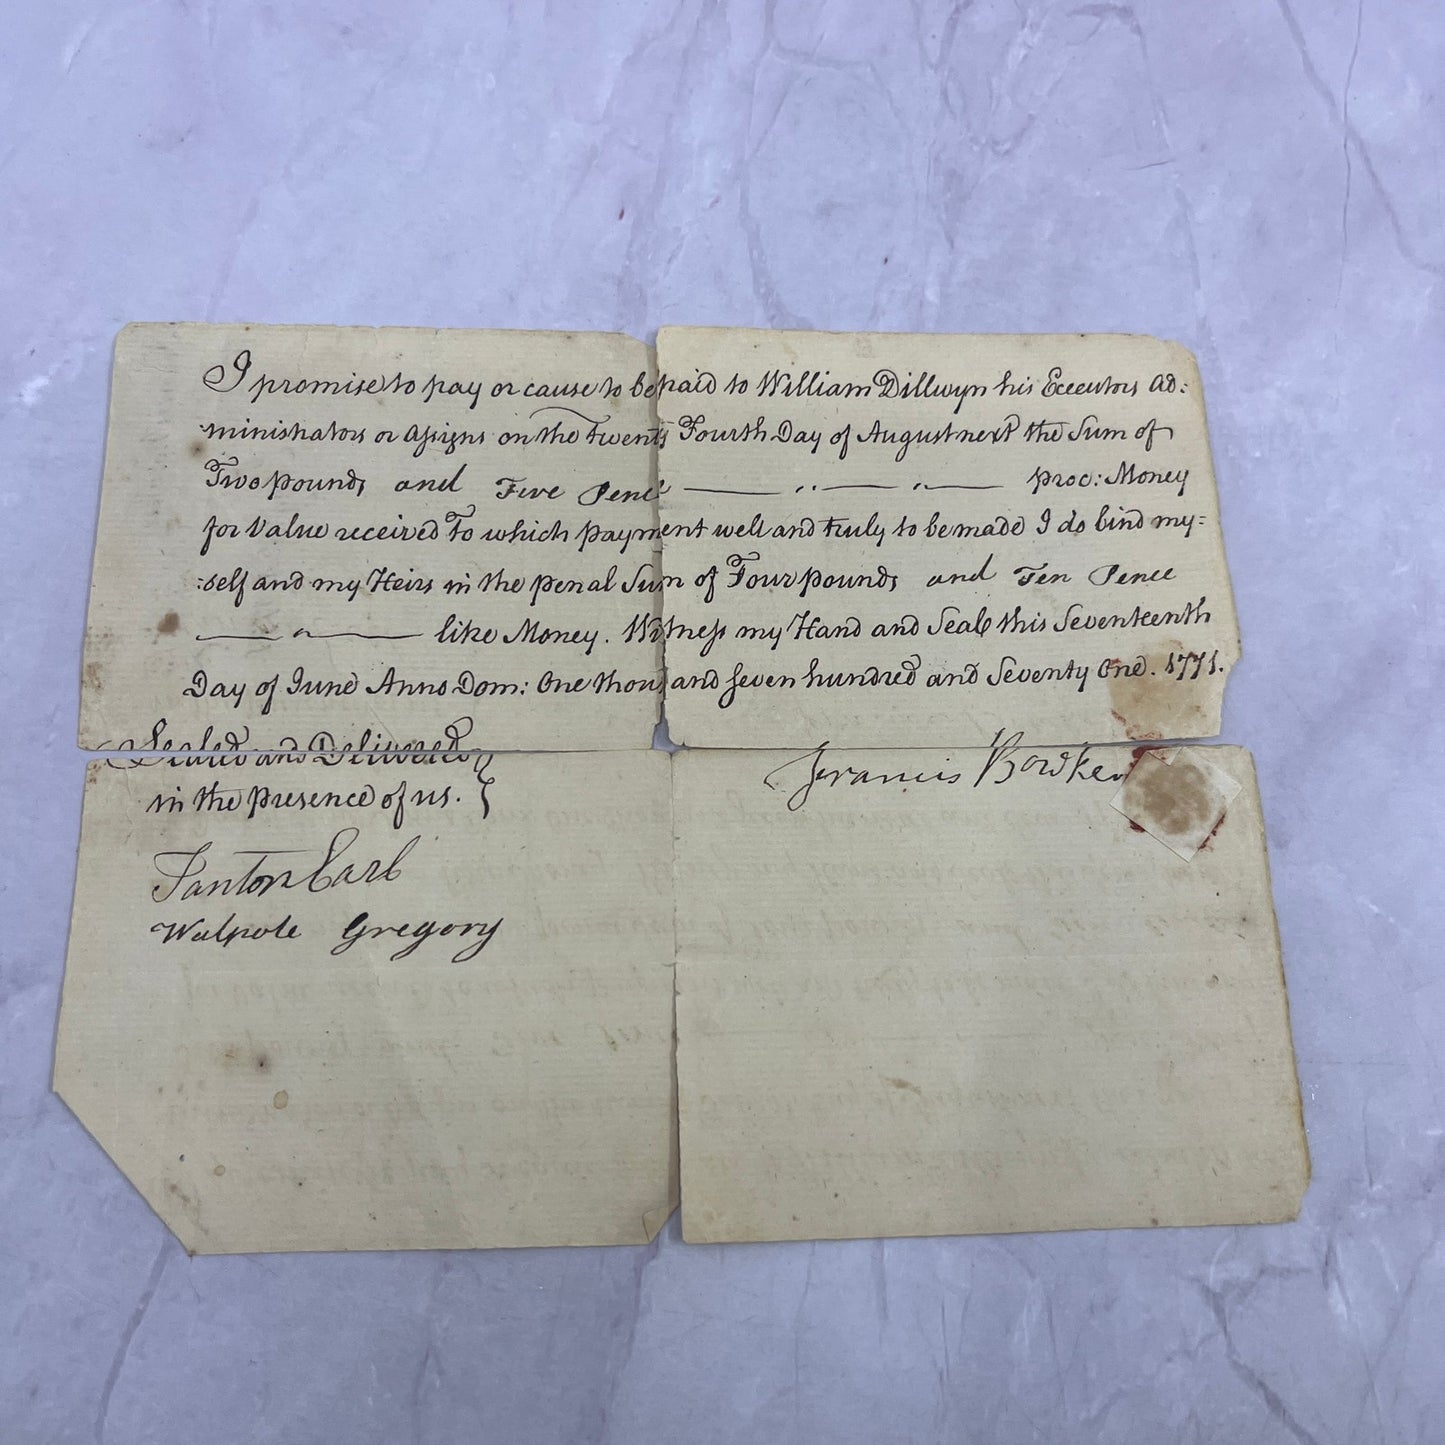 I promise to pay or cause to be paid to William Dillwyn his Executors Ad:
:ministrators or Assigns on the Twenty Fourth Day of August next the Sum of
Two pounds and Five Pence proc: Money
for Value received To which payment well and truly to be made I do bind my:
:self and my Heirs in the penal Sum of Four pounds and Ten Pence
like Money. Witness my Hand and Seal this Seventeenth
Day of June Anno Dom: One thousand seven hundred and Seventy One. 1771.
Sealed and Delivered
in the presence of us.
Francis Bowker
Tanton Earl
Walpole Gregory